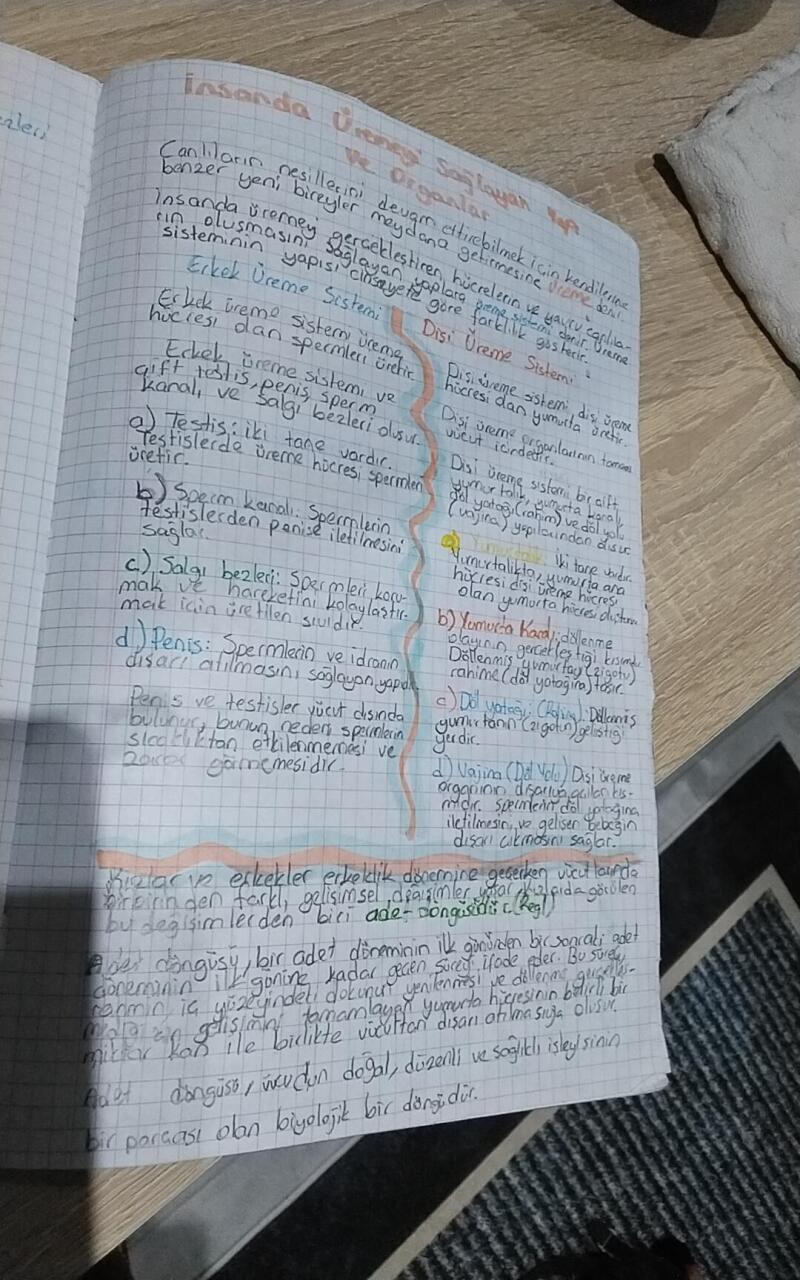 nzleri
İnsanda Üremeyi Sağlayan Yapı
ve Organlar
Canlıların nesillerini devam ettirebilmek için kendilerine
benzer yeni bireyler meydana getirmesine üreme denir.
İnsanda üremeyi gerçekleştiren, hücrelerin ve yavru canlıla-
rın oluşmasını sağlayan yapılara üreme sistemi denir. Üreme
sisteminin yapısı cinsiyete göre farklılık gösterir.
Erkek Üreme Sistemi
Erkek üreme sistemi üreme
hücresi olan spermleri üretir.
Erkek üreme sistemi ve
çift testis, penis, sperm
kanalı, ve salgı bezleri oluşur.
a) Testis: iki tane vardır.
Testislerde üreme hücresi spermleri
üretir.
b) Sperm kanalı: Spermlerin
testislerden penise iletilmesini
sağlar.
c) Salgı bezleri: Spermleri koru-
mak ve hareketini kolaylaştır-
mak için üretilen sıvıdır.
d) Penis: Spermlerin ve idrarın
dışarı atılmasını sağlayan yapıdır.
Penis ve testisler vücut dışında
bulunur, bunun nedeni spermlerin
sıcaklıktan etkilenmemesi ve
zarar görmemesidir.
Dişi Üreme Sistemi
Dişi üreme sistemi, dişi üreme
hücresi olan yumurta üretir.
Dişi üreme organlarının tamamı
vücut içindedir.
Dişi üreme sistemi bir çift
yumurtalık, yumurta kanalı
döl yatağı (rahim) ve döl yolu
(vajina) yapılarından oluşur.
a) Yumurtalık: İki tane vardır.
Yumurtalıkta, yumurta ana
hücresi dişi üreme hücresi
olan yumurta hücresi oluşturur
b) Yumurta Kanalı: döllenme
olayının gerçekleştiği kısımdır
Döllenmiş yumurtayı (zigotu)
rahime (döl yatağına) taşır.
c) Döl yatağı: (Rahim): Döllenmiş
yumurtanın (zigotun) geliştiği
yerdir.
d) Vajina (Döl Yolu) Dişi üreme
organının dışarıya açılan kıs-
mıdır. spermlerin döl yatağına
iletilmesini, ve gelişen bebeğin
dışarı çıkmasını sağlar.
Kızlar ve erkekler erkeklik dönemine geçerken vücutlarında
birbirinden farklı, gelişimsel değişimler yaşar, kızlarda görülen
bu değişimlerden biri ade- döngüsüdür (Regl)
Adet döngüsü, bir adet döneminin ilk gününden bir sonraki adet
döneminin ilk gönine kadar geçen süreyi ifade eder. Bu süreç
rahmin iç yüzeyindeki dokunun yenilenmesi ve döllenme gerçekleş-
gelişimini tamamlayan yumurta hücresinin belirli bir
miktar kan ile birlikte vücuttan dışarı atılmasıyla oluşur.
Adet döngüsü, vücudun doğal, düzenli ve sağlıklı işleyişinin
bir parçası olan biyolojik bir döngüdür.